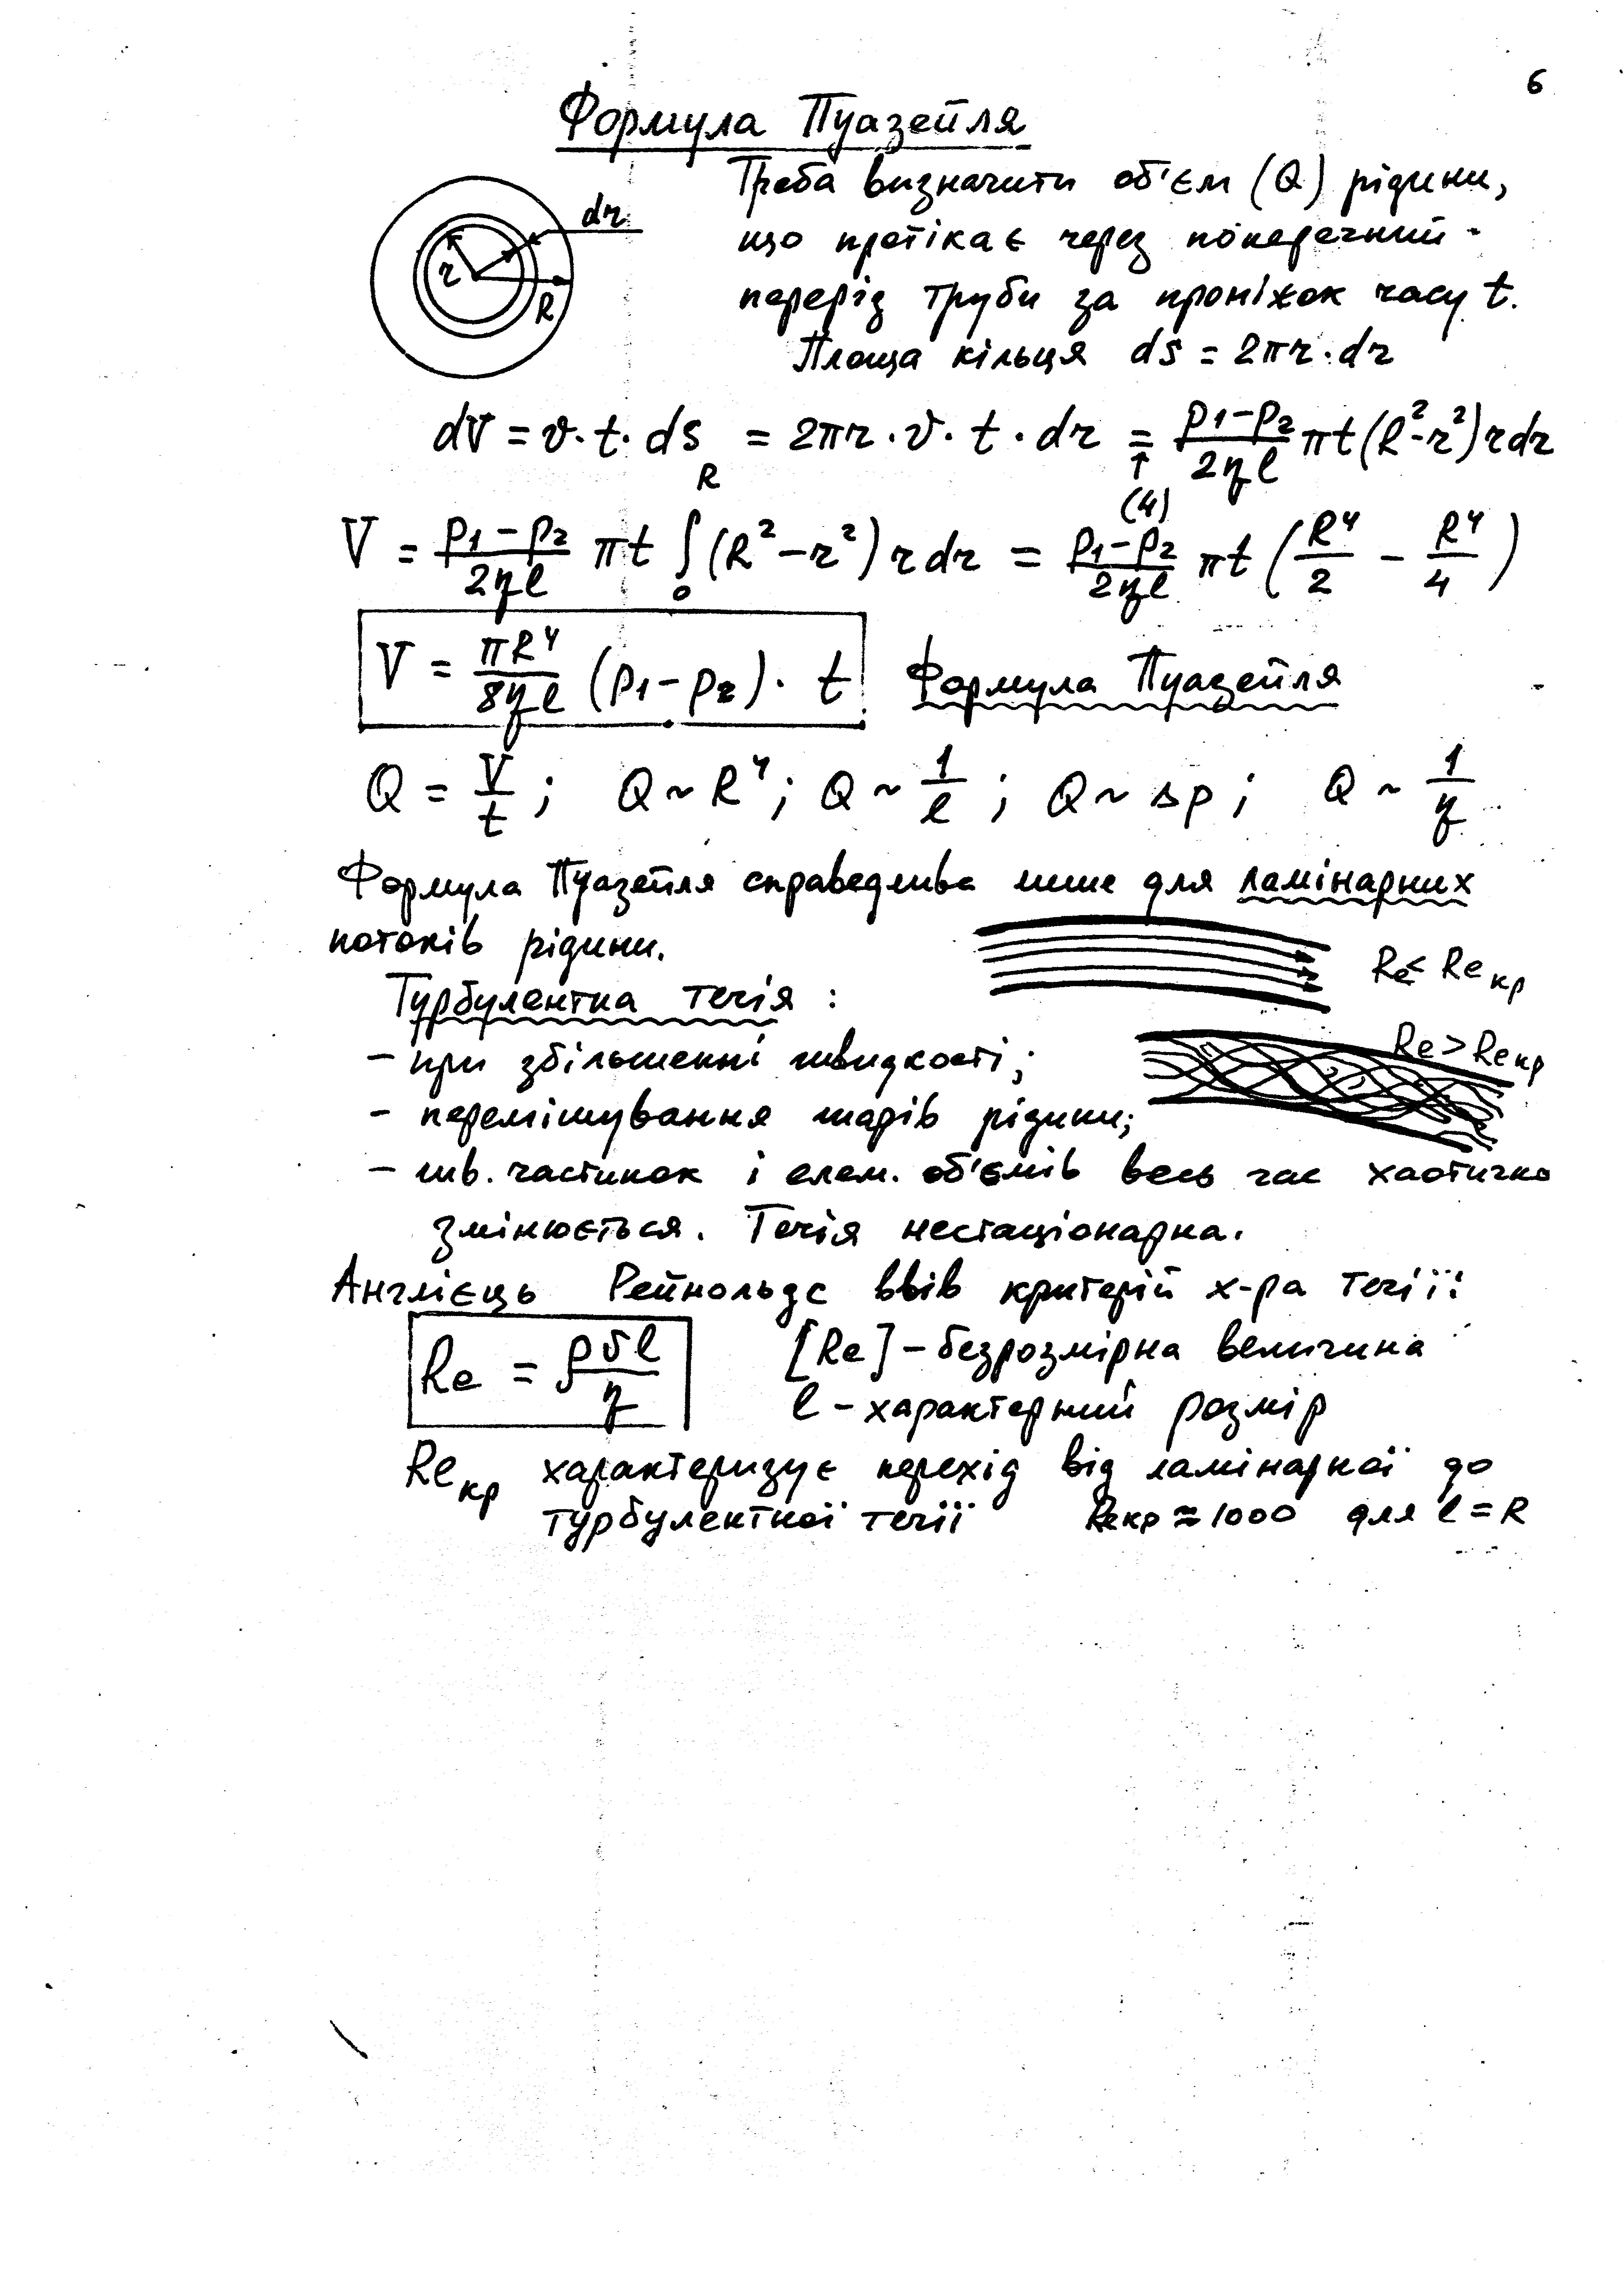 6
Формула Пуазейля
dr
r
R
Треба визначити об'єм (Q) рідини,
що протікає через поперечний
переріз труби за проміжок часу t.
Площа кільця ds = 2πr·dr
dV = v·t·ds = 2πr·v·t·dr = (p₁-p₂)/(2ηl) πt(R²-r²)rdr
↑
(4)
V = (p₁-p₂)/(2ηl) πt ∫₀ᴿ (R²-r²) r dr = (p₁-p₂)/(2ηl) πt (R⁴/2 - R⁴/4)
V = πR⁴/(8ηl) (p₁-p₂)· t Формула Пуазейля
Q = V/t ; Q ~ R⁴; Q ~ 1/l ; Q ~ Δp ; Q ~ 1/η
Формула Пуазейля справедлива лише для ламінарних
потоків рідини.
Re < Re кр
Турбулентна течія :
Re > Re кр
- при збільшенні швидкості;
- перемішування шарів рідини;
- шв. частинок і елем. об'ємів весь час хаотично
змінюється. Течія нестаціонарна.
Англієць Рейнольдс ввів критерій х-ра течії:
Re = ρvl/η [Re] - безрозмірна величина
l - характерний розмір
Re кр характеризує перехід від ламінарної до
турбулентної течії Re кр ≈ 1000 для l = R